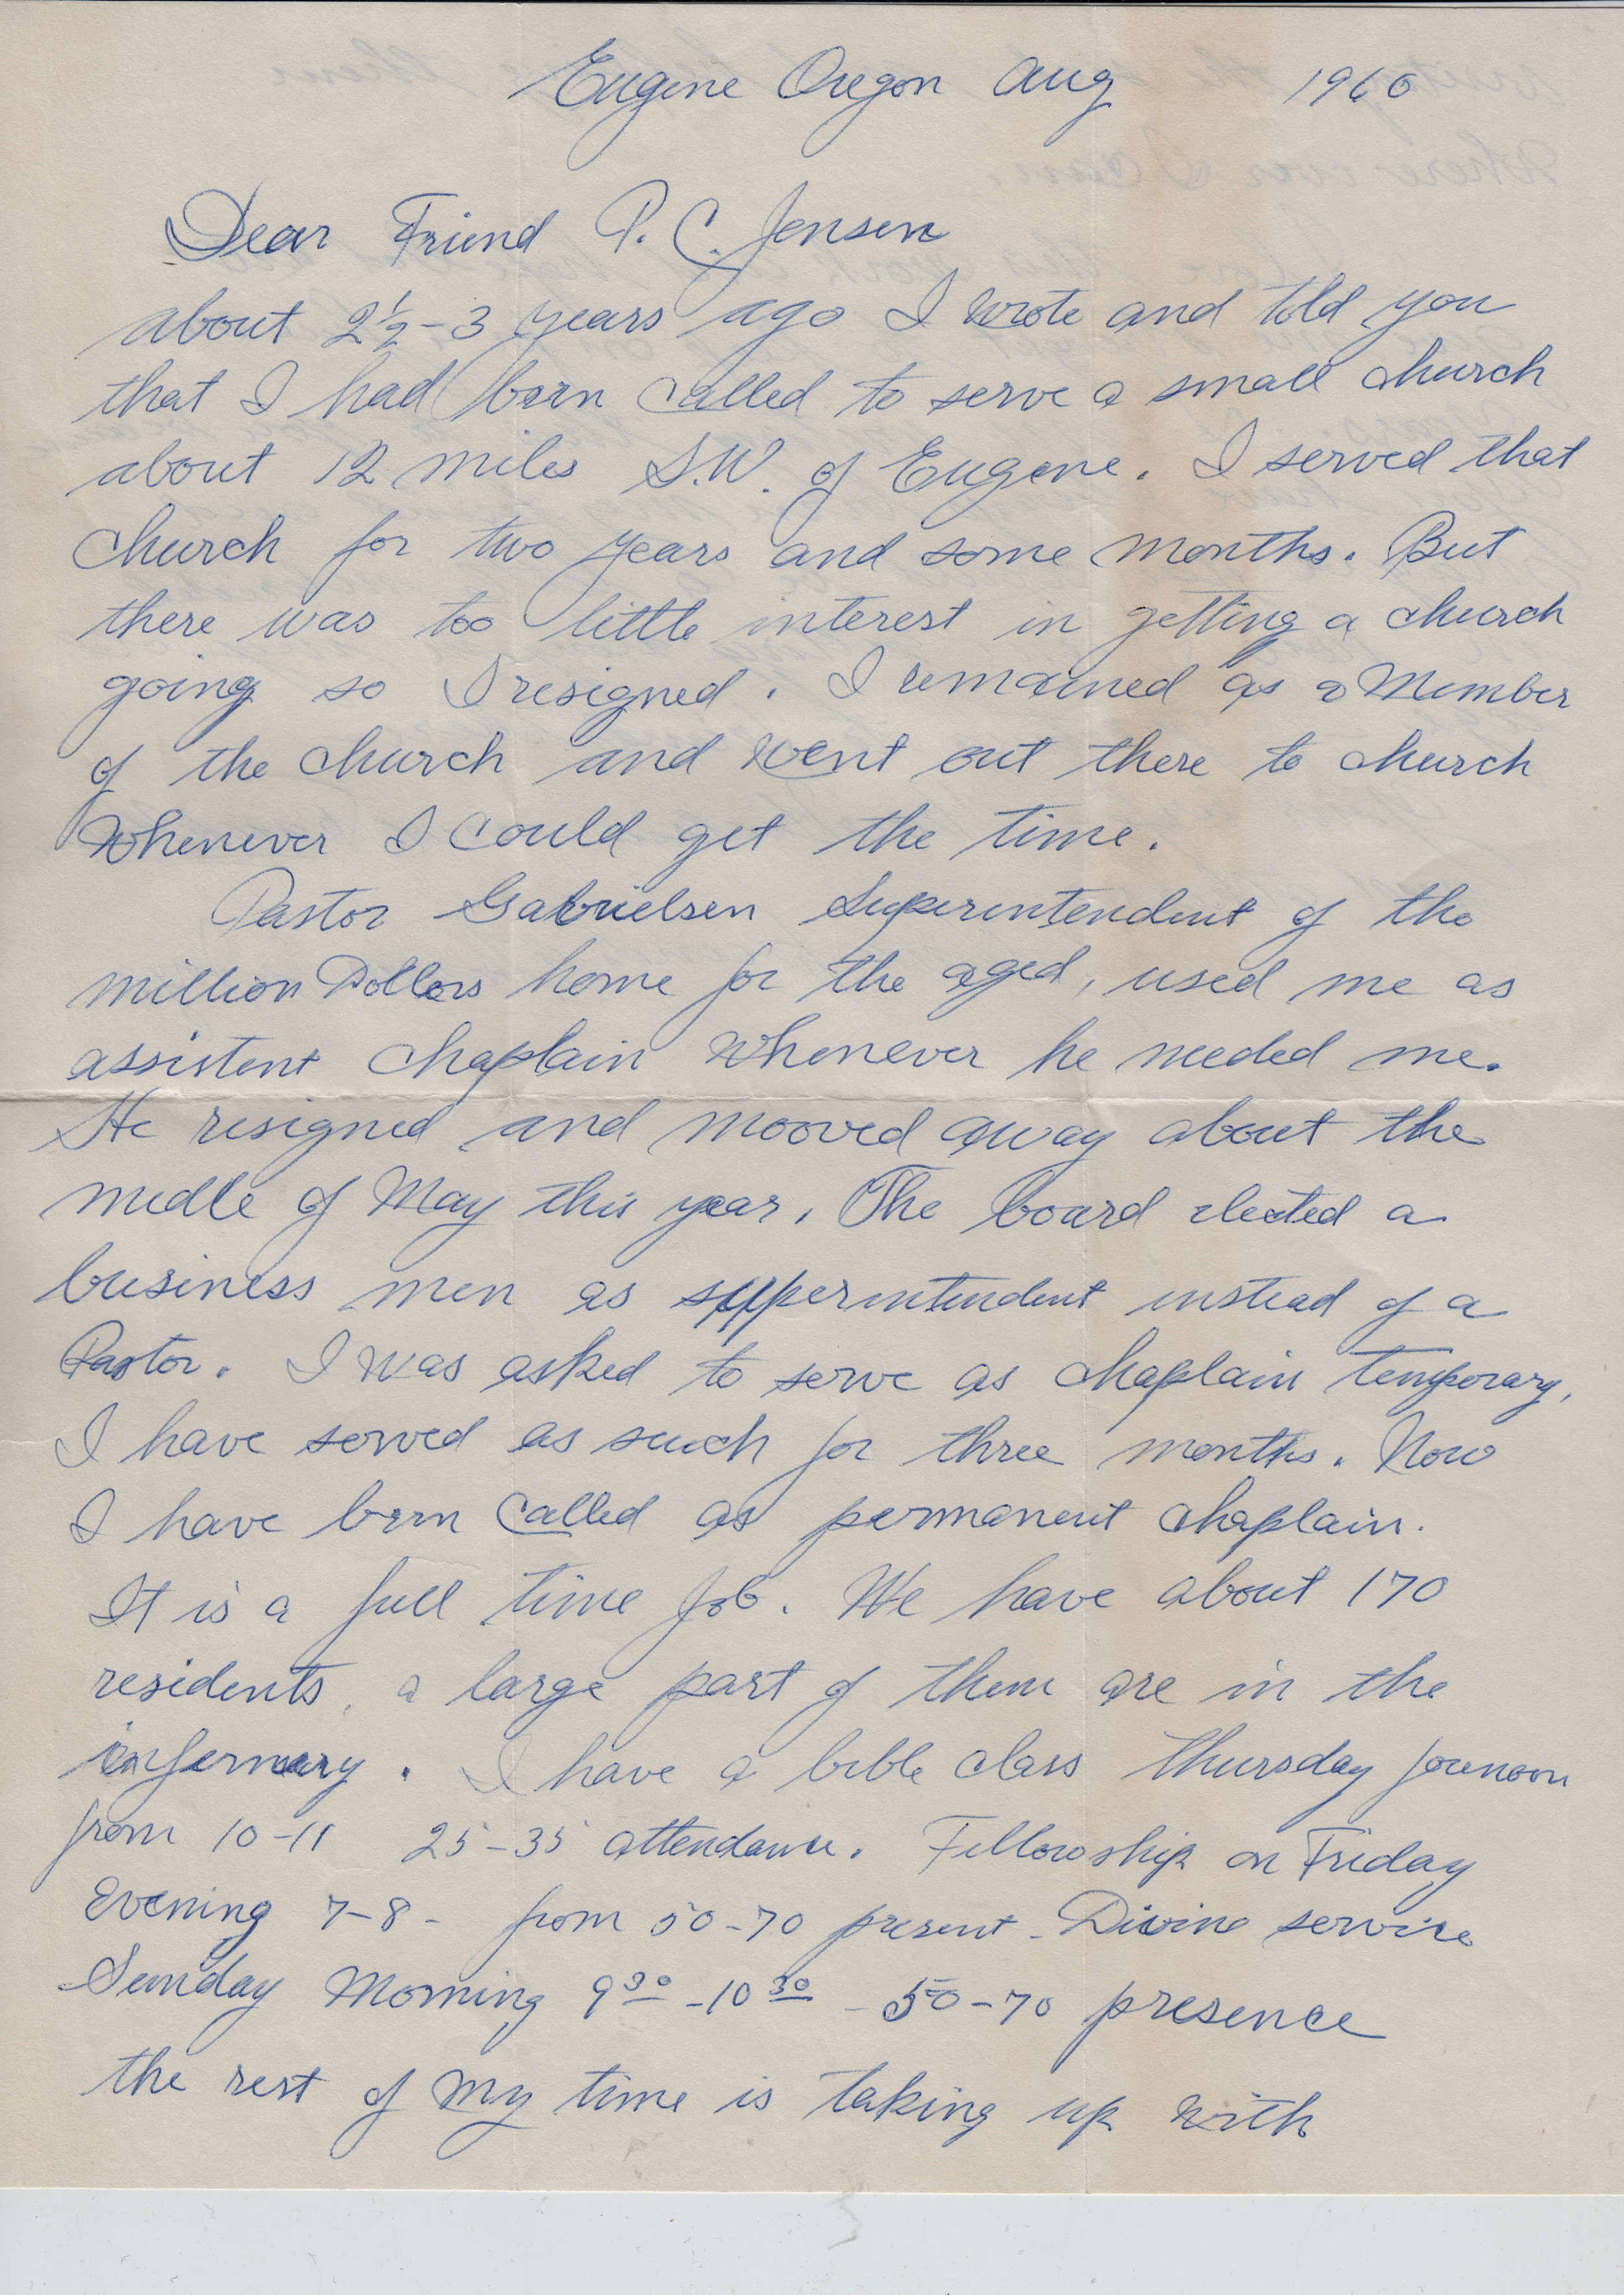 Eugene Oregon Aug 1960
Dear Friend P. C. Jensen
about 2½-3 years ago I wrote and told you
that I had been called to serve a small church
about 12 miles S.W. of Eugene. I served that
church for two years and some months. But
there was too little interest in getting a church
going so I resigned. I remained as a Member
of the church and went out there to church
Whenever I could get the time.
Pastor Gabrielsen Superintendent of the
million Dollars home for the aged, used me as
assistent chaplain whenever he needed me.
He resigned and mooved away about the
midle of May this year. The board elected a
business men as supperintendent instead of a
Pastor. I was asked to serve as chaplain temporary,
I have served as such for three months. Now
I have been called as permanent chaplain.
It is a full time job. We have about 170
residents, a large part of them are in the
infermary. I have a bible class Thursday forenoon
from 10-11 25-35 attendance. Fellowship on Friday
Evening 7-8 - from 50-70 present - Divine service
Sunday Morning 9 30 - 10 30 - 50-70 presence
the rest of my time is taking up with